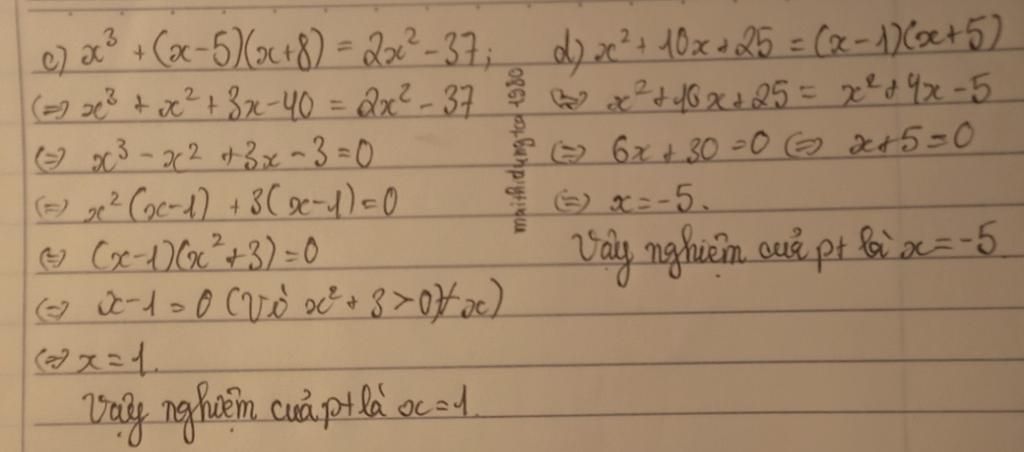 c) x³ + (x-5)(x+8) = 2x² - 37;
⇔ x³ + x² + 3x - 40 = 2x² - 37
⇔ x³ - x² + 3x - 3 = 0
⇔ x²(x-1) + 3(x-1) = 0
⇔ (x-1)(x²+3) = 0
⇔ x - 1 = 0 (Vì x² + 3 > 0 ∀ x)
⇔ x = 1.
Vậy nghiệm của pt là x = 1
maithidungtca1980
d) x² + 10x + 25 = (x-1)(x+5)
⇔ x² + 10x + 25 = x² + 4x - 5
⇔ 6x + 30 = 0 ⇔ x + 5 = 0
⇔ x = -5.
Vậy nghiệm của pt là x = -5